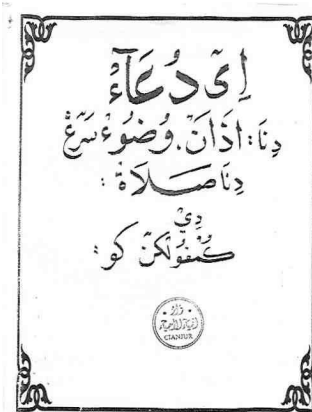 اِیْ دُعَآءْ
دِنَا: اَذَانْ. وُضُوْءْ سَرَڠْ
دِنَا صَلَاةْ:
دِيْ
كُمْفُوْلْكَنْ كُو:
CIANJUR